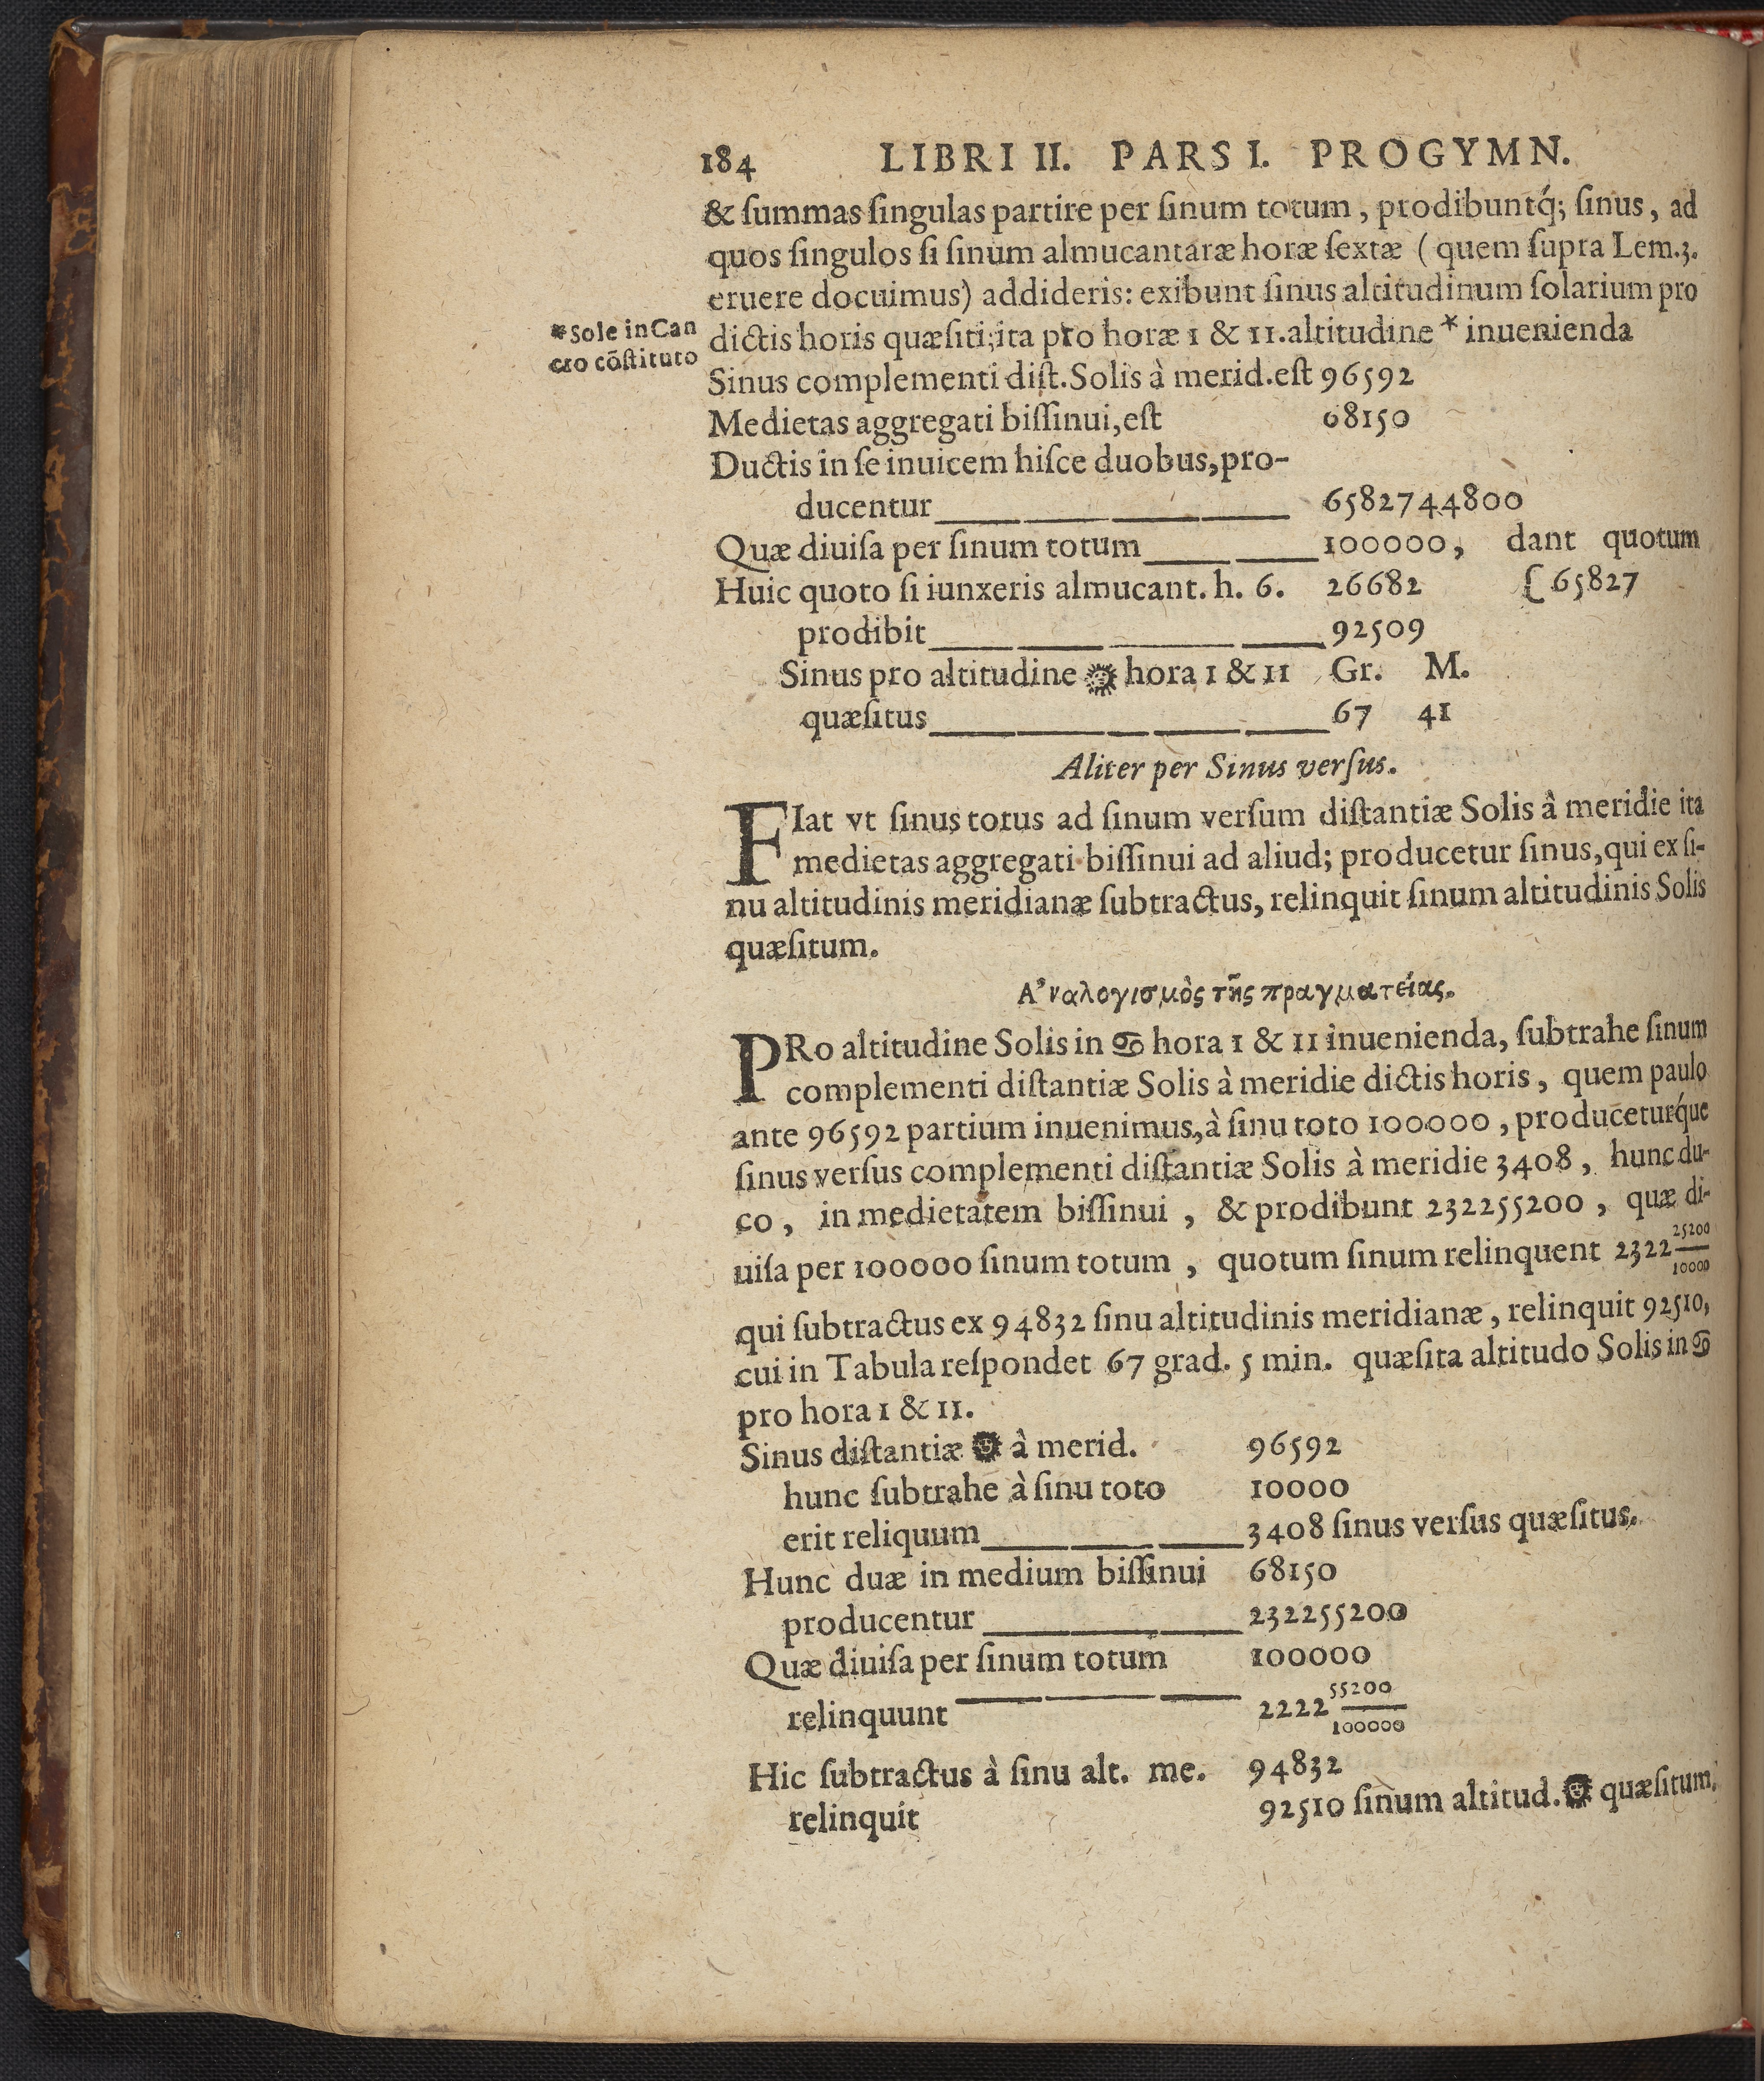 184 LIBRI II. PARS I. PROGYMN.
& ſummas ſingulas partire per ſinum totum, prodibuntq́; ſinus, ad
quos ſingulos ſi ſinum almucantaræ horæ ſextæ (quem ſupra Lem.3.
eruere docuimus) addideris: exibunt ſinus altitudinum ſolarium pro
*Sole in Can
cro cõſtituto
dictis horis quæſiti; ita pro horæ 1 & 11. altitudine * inuenienda
Sinus complementi diſt. Solis à merid. eſt 96592
Medietas aggregati biſſinui, eſt 68150
Ductis in ſe inuicem hiſce duobus, pro-
ducentur 6582744800
Quæ diuiſa per ſinum totum 100000, dant quotum
Huic quoto ſi iunxeris almucant. h. 6. 26682 {65827
prodibit 92509
Sinus pro altitudine ☉ hora 1 & 11 Gr. M.
quæſitus 67 41
Aliter per Sinus verſus.
FIat vt ſinus totus ad ſinum verſum diſtantiæ Solis à meridie ita
medietas aggregati biſſinui ad aliud; producetur ſinus, qui ex ſi-
nu altitudinis meridianæ ſubtractus, relinquit ſinum altitudinis Solis
quæſitum.
Α᾿ναλογισμὸς τῆς πραγματείας.
PRo altitudine Solis in ♋ hora 1 & 11 inuenienda, ſubtrahe ſinum
complementi diſtantiæ Solis à meridie dictis horis, quem paulo
ante 96592 partium inuenimus, à ſinu toto 100000, produceturq́ue
ſinus verſus complementi diſtantiæ Solis à meridie 3408, hunc du-
co, in medietatem biſſinui, & prodibunt 232255200, quæ di-
uiſa per 100000 ſinum totum, quotum ſinum relinquent 2322 25200/10000
qui ſubtractus ex 94832 ſinu altitudinis meridianæ, relinquit 92510,
cui in Tabula reſpondet 67 grad. 5 min. quæſita altitudo Solis in ♋
pro hora 1 & 11.
Sinus diſtantiæ ☉ â merid. 96592
hunc ſubtrahe à ſinu toto 10000
erit reliquum 3408 ſinus verſus quæſitus.
Hunc duæ in medium biſſinui 68150
producentur 232255200
Quæ diuiſa per ſinum totum 100000
relinquunt 2222 55200/100000
Hic ſubtractus à ſinu alt. me. 94832
relinquit 92510 ſinum altitud. ☉ quæſitum.